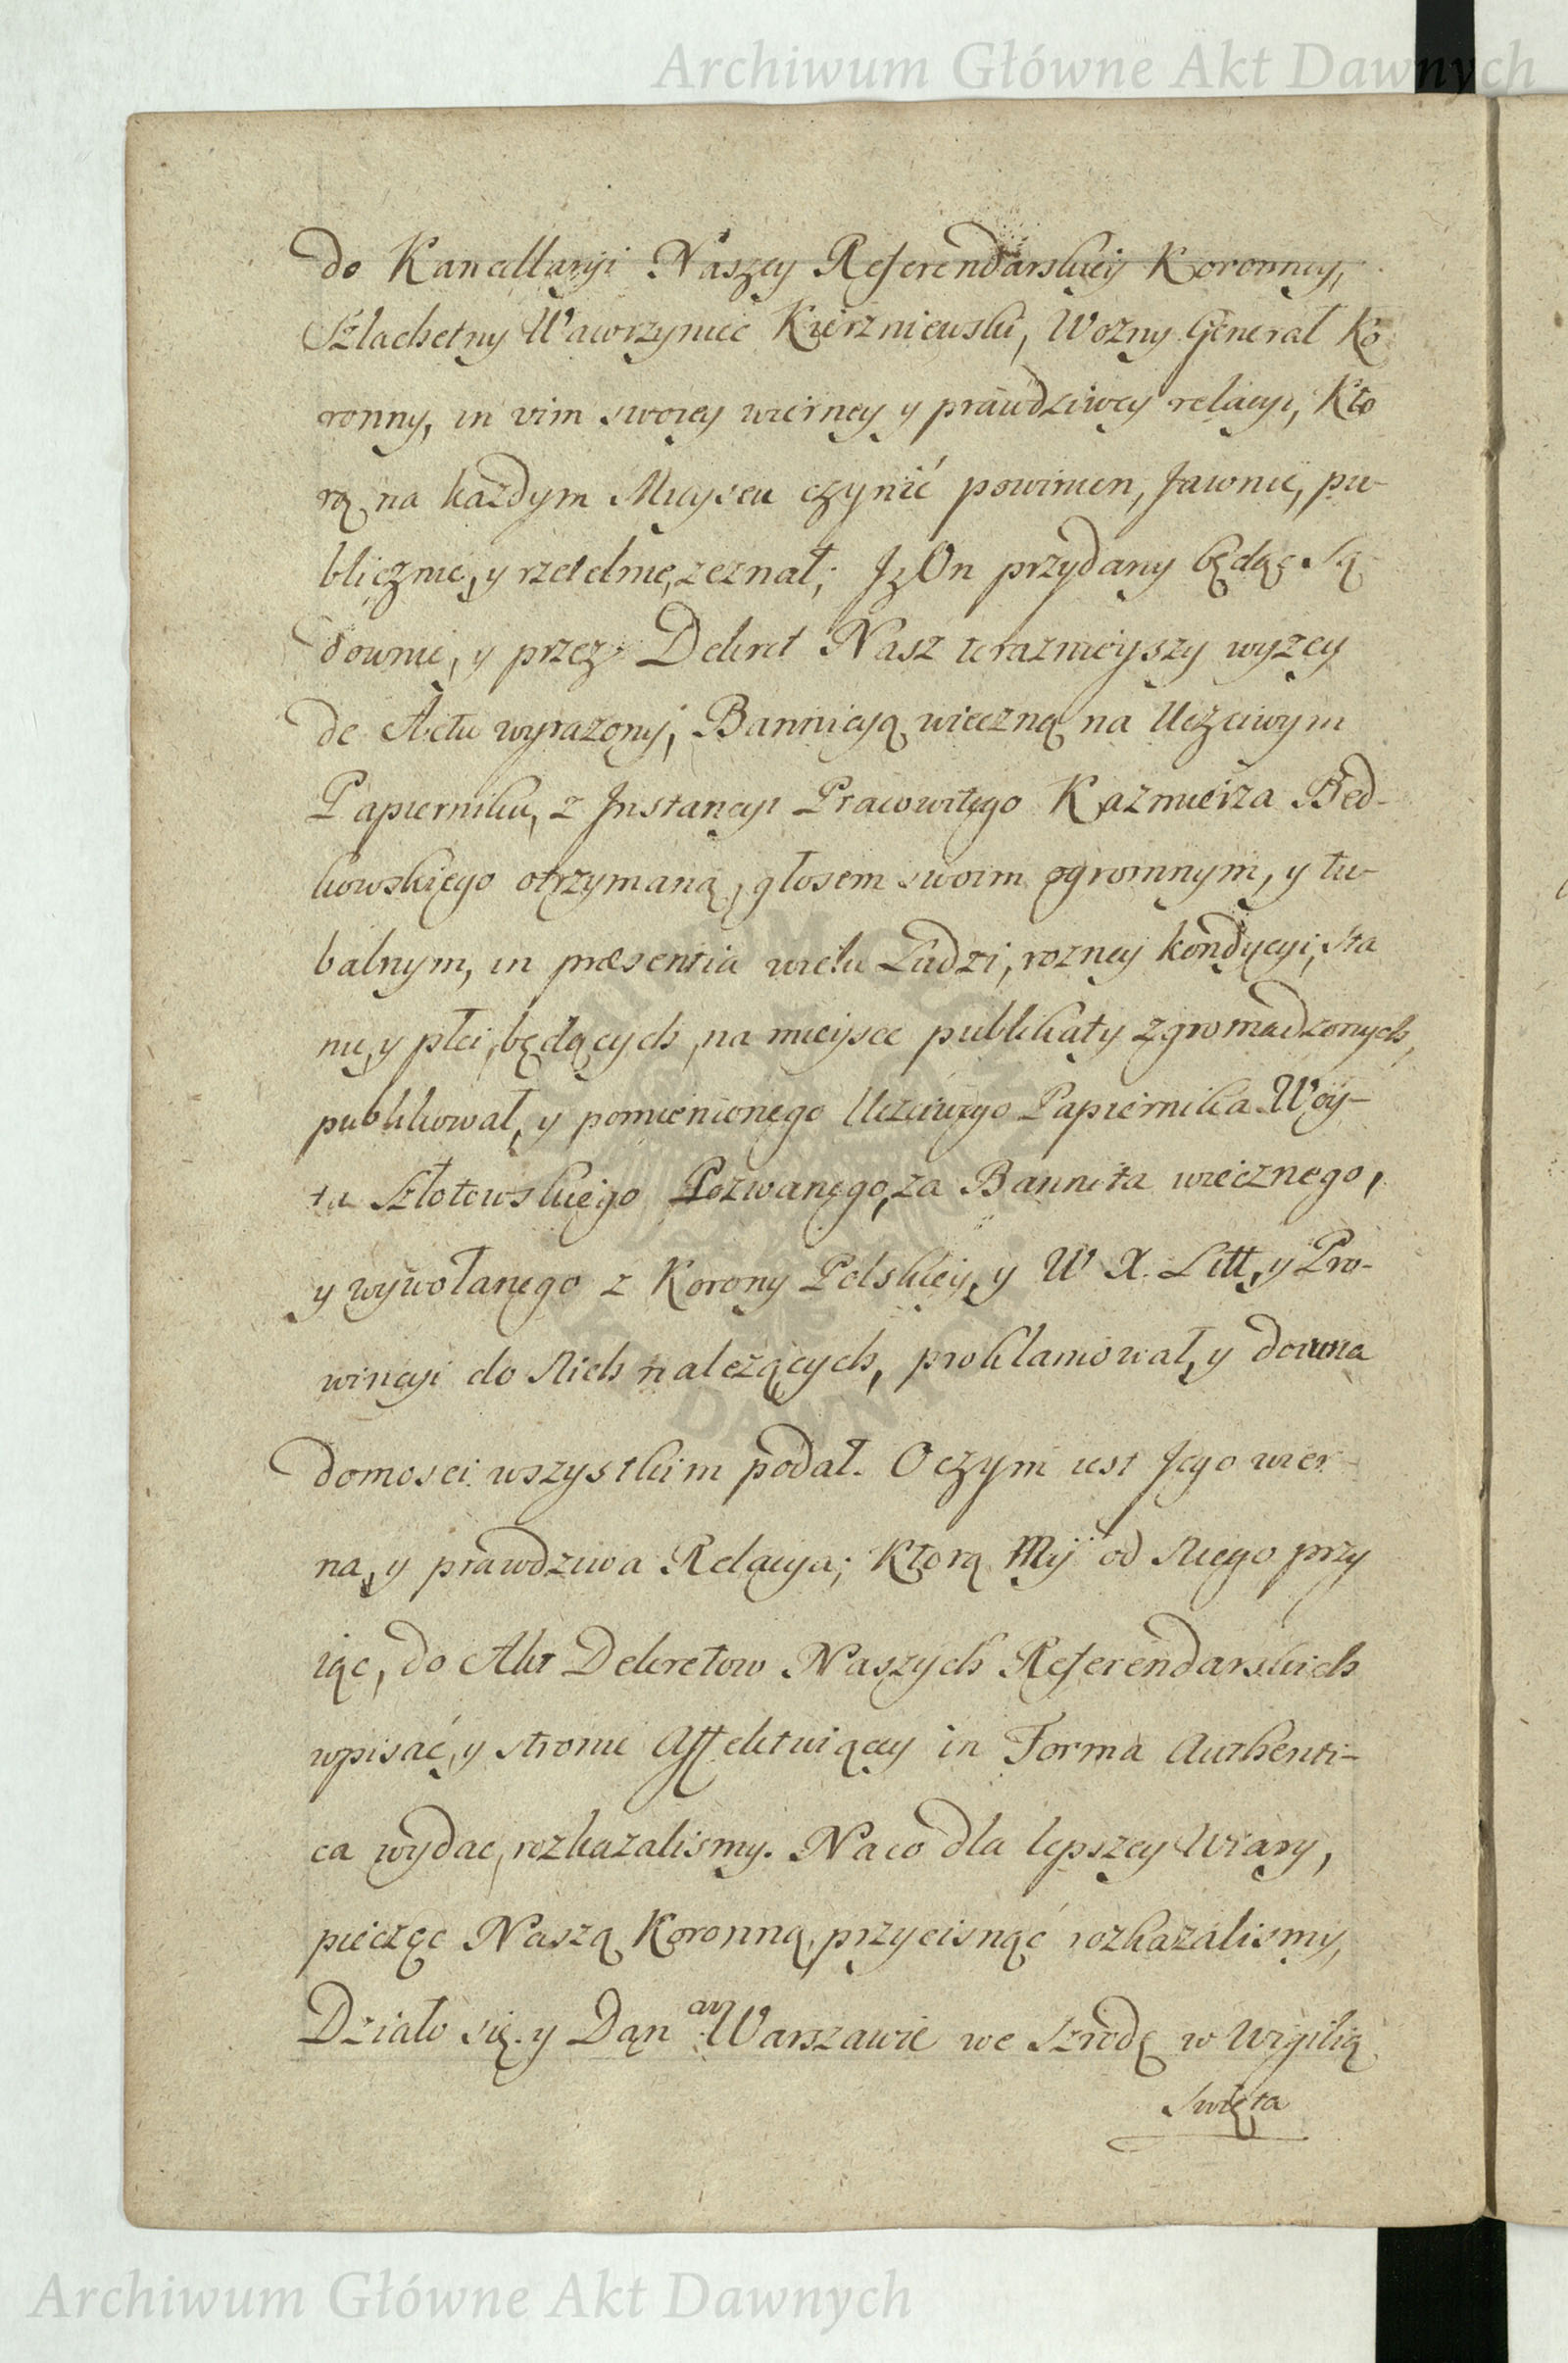 Archiwum Główne Akt Dawnych
do Kancellaryi Naszey Referendarskiey Koronney,
Szlachetny Wawrzyniec Kierzniewski, Wozny Generał Ko
ronny, in vim swoiey wierney y prawdziwey relacyi, Kto
rą na każdym Mieyscu czynić powinien, Jawnie, pu-
blicznie, y rzetelnie, zeznał; Jz On przydany będąc Są
downie, y przez Dekret Nasz teraznieyszy wyzey
de Actu wyrazony, Bannicyą wieczną na Uczciwym
Papierniku, z Jnstancyi Pracowitego Kazmierza Bed-
kowskiego otrzymaną, głosem swoim ogromnym, y tu-
balnym, in præsentia wielu Ludzi, rozney kondycyi, sta
nu, y płci, będących, na mieysce publikaty zgromadzonych,
publikował, y pomienionego Uczciwego Papiernika Woy-
ta Szłotowskiego Pozwanego, za Bannita wiecznego,
y wywołanego z Korony Polskiey, y W. X. Litt, y Pro-
wincyi do Nich należących, proklamował, y dowia
domosci wszystkim podał. O czym iest Jego wier-
na, y prawdziwa Relacya; Ktorą My od Niego przy
iąc, do Akt Dekretow Naszych Referendarskich
wpisać, y stronie Affektuiącey in Forma Authenti-
ca wydac, rozkazalismy. Naco dla lepszey Wiary,
pieczęc Naszą Koronną, przycisnąć rozkazalismy,
Działo się y Dan w Warszawie we Szrodę w Wigilią
Swięta
Archiwum Główne Akt Dawnych